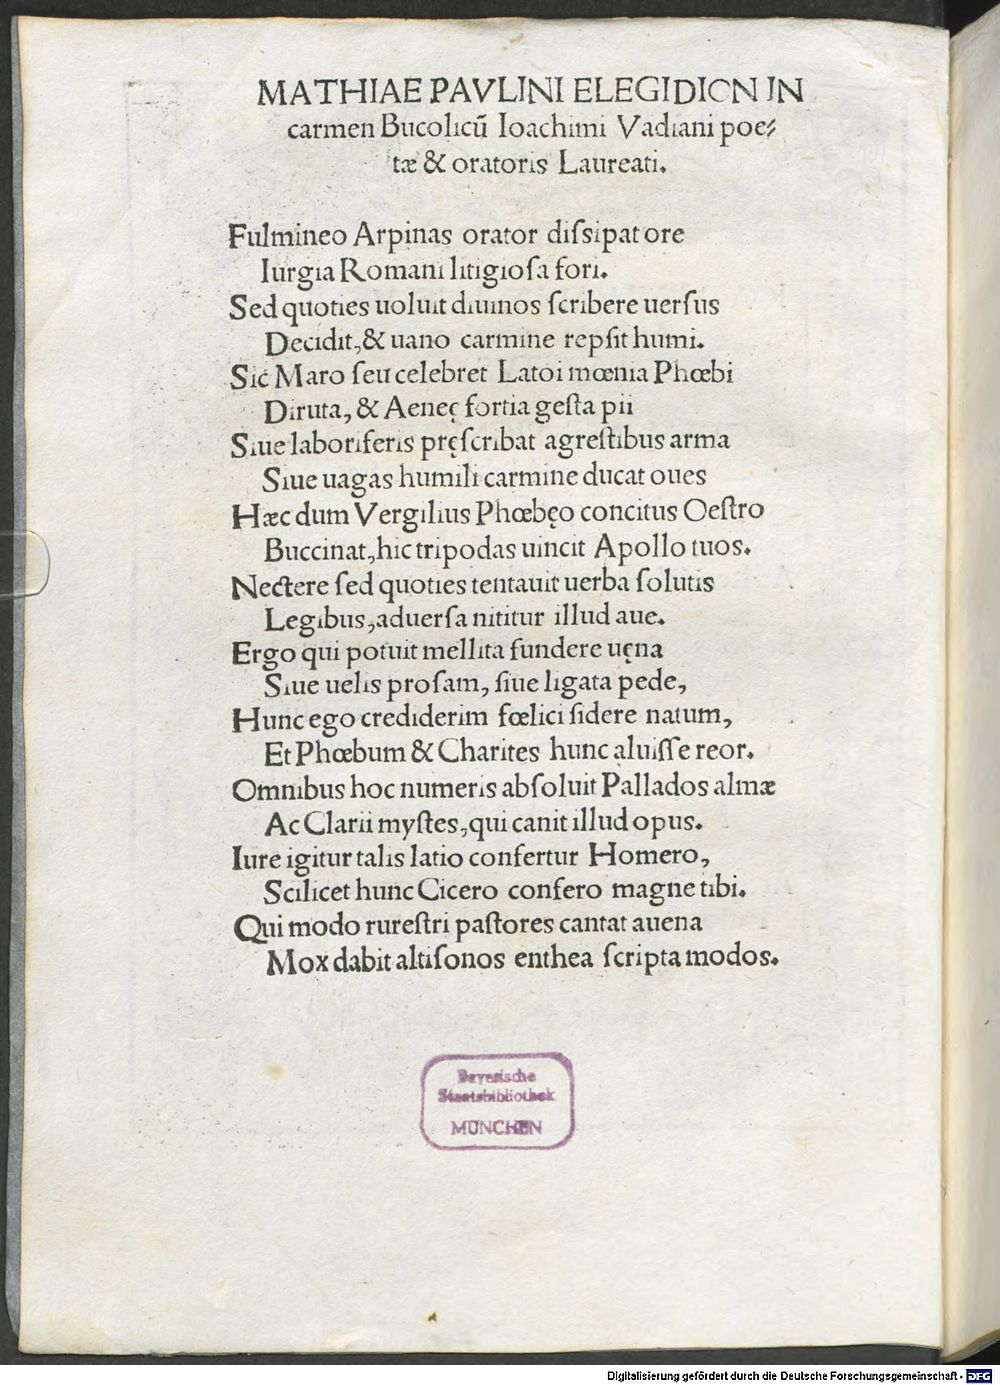 MATHIAE PAVLINI ELEGIDION IN
carmen Bucolicū Ioachimi Vadiani poe⸗
tæ & oratoris Laureati.
Fulmineo Arpinas orator diſsipat ore
Iurgia Romani litigioſa fori.
Sed quoties uoluit diuinos ſcribere uerſus
Decidit, & uano carmine repſit humi.
Sic Maro ſeu celebret Latoi mœnia Phœbi
Diruta, & Aeneę fortia geſta pii
Siue laboriferis pręſcribat agreſtibus arma
Siue uagas humili carmine ducat oues
Hæc dum Vergilius Phœbęo concitus Oeſtro
Buccinat, hic tripodas uincit Apollo tuos.
Nectere ſed quoties tentauit uerba ſolutis
Legibus, aduerſa nititur illud aue.
Ergo qui potuit mellita fundere uęna
Siue uelis proſam, ſiue ligata pede,
Hunc ego crediderim fœlici ſidere natum,
Et Phœbum & Charites hunc aluiſſe reor.
Omnibus hoc numeris abſoluit Pallados almæ
Ac Clarii myſtes, qui canit illud opus.
Iure igitur talis latio confertur Homero,
Scilicet hunc Cicero confero magne tibi.
Qui modo rureſtri paſtores cantat auena
Mox dabit altiſonos enthea ſcripta modos.
Bayerische
Staatsbibliothek
MÜNCHEN
Digitalisierung gefördert durch die Deutsche Forschungsgemeinschaft - DFG